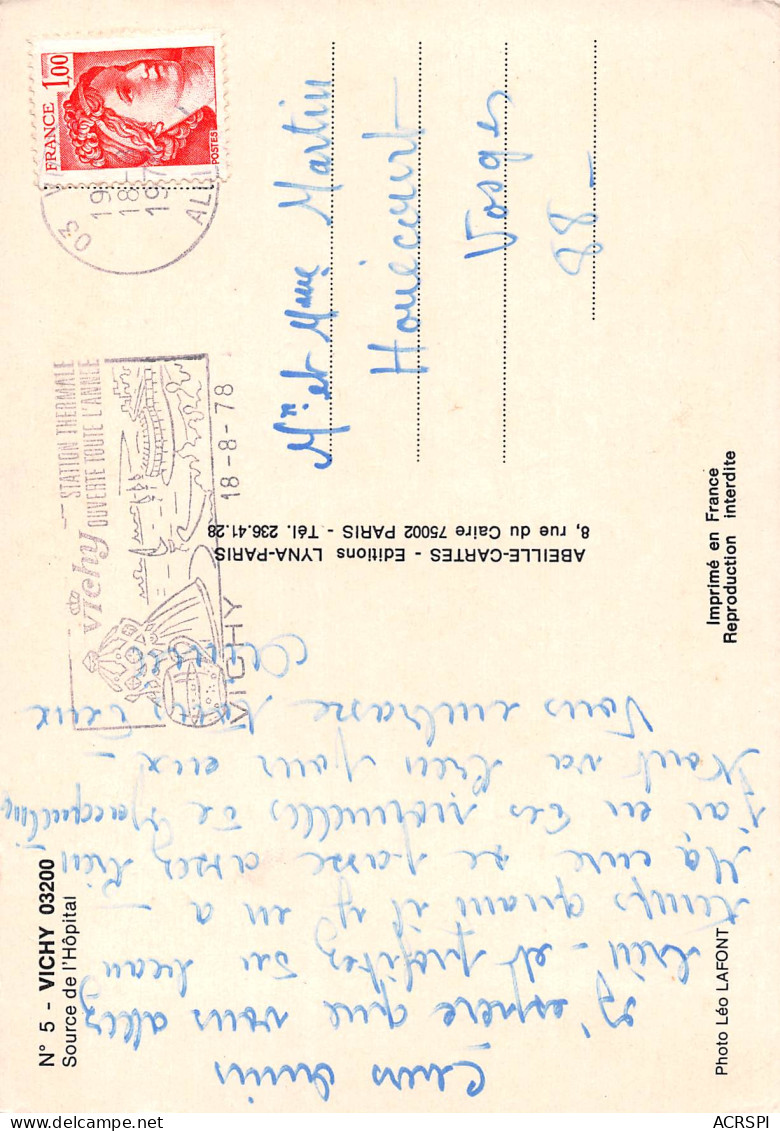 N° 5 - VICHY 03200
Source de l'Hôpital
Chers amis
J'espère que vous allez
bien - et profitez du beau
temps quand il y en a -
Ma cure se passe assez bien
J'ai eu des nouvelles de Jacqueline
tout va bien pour eux -
Vous embrasse tous deux
ABEILLE-CARTES - Editions LYNA-PARIS
8, rue du Caire 75002 PARIS - Tél. 236.41.28
Photo Léo LAFONT
Imprimé en France
Reproduction interdite
FRANCE 1,00
POSTES
03
19
18
197
ALL
Vichy
STATION THERMALE
OUVERTE TOUTE L'ANNÉE
VICHY 18-8-78
Mr. et Mme Martin
Houécourt
Vosges
88-
ACRSPI